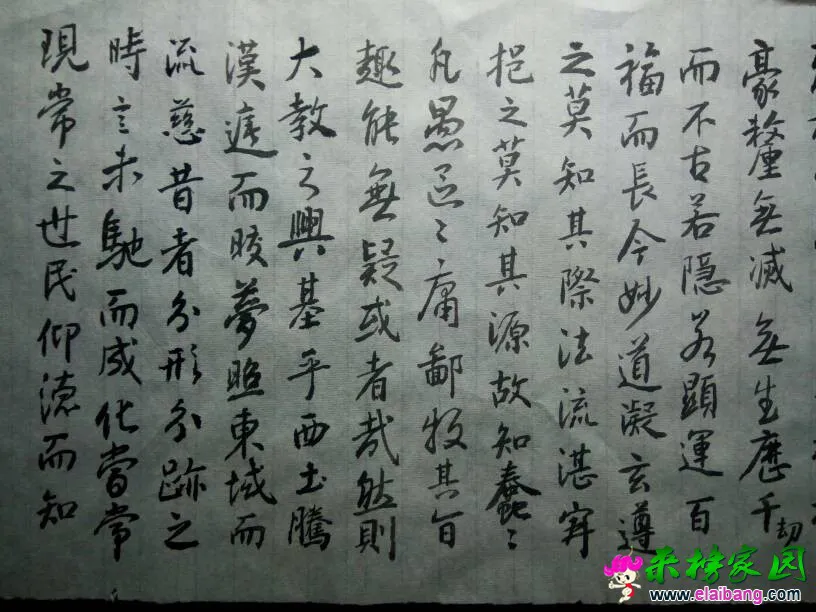 豪釐無滅無生歷千劫
而不古若隱若顯運百
福而長今妙道凝玄遵
之莫知其際法流湛寂
挹之莫知其源故知蠢〻
凡愚區〻庸鄙投其旨
趣能無疑或者哉然則
大教之興基乎西土騰
漢庭而皎夢照東域而
流慈昔者分形分跡之
時言未馳而成化當常
現常之世民仰德而知
来榜家园
www.elaibang.com